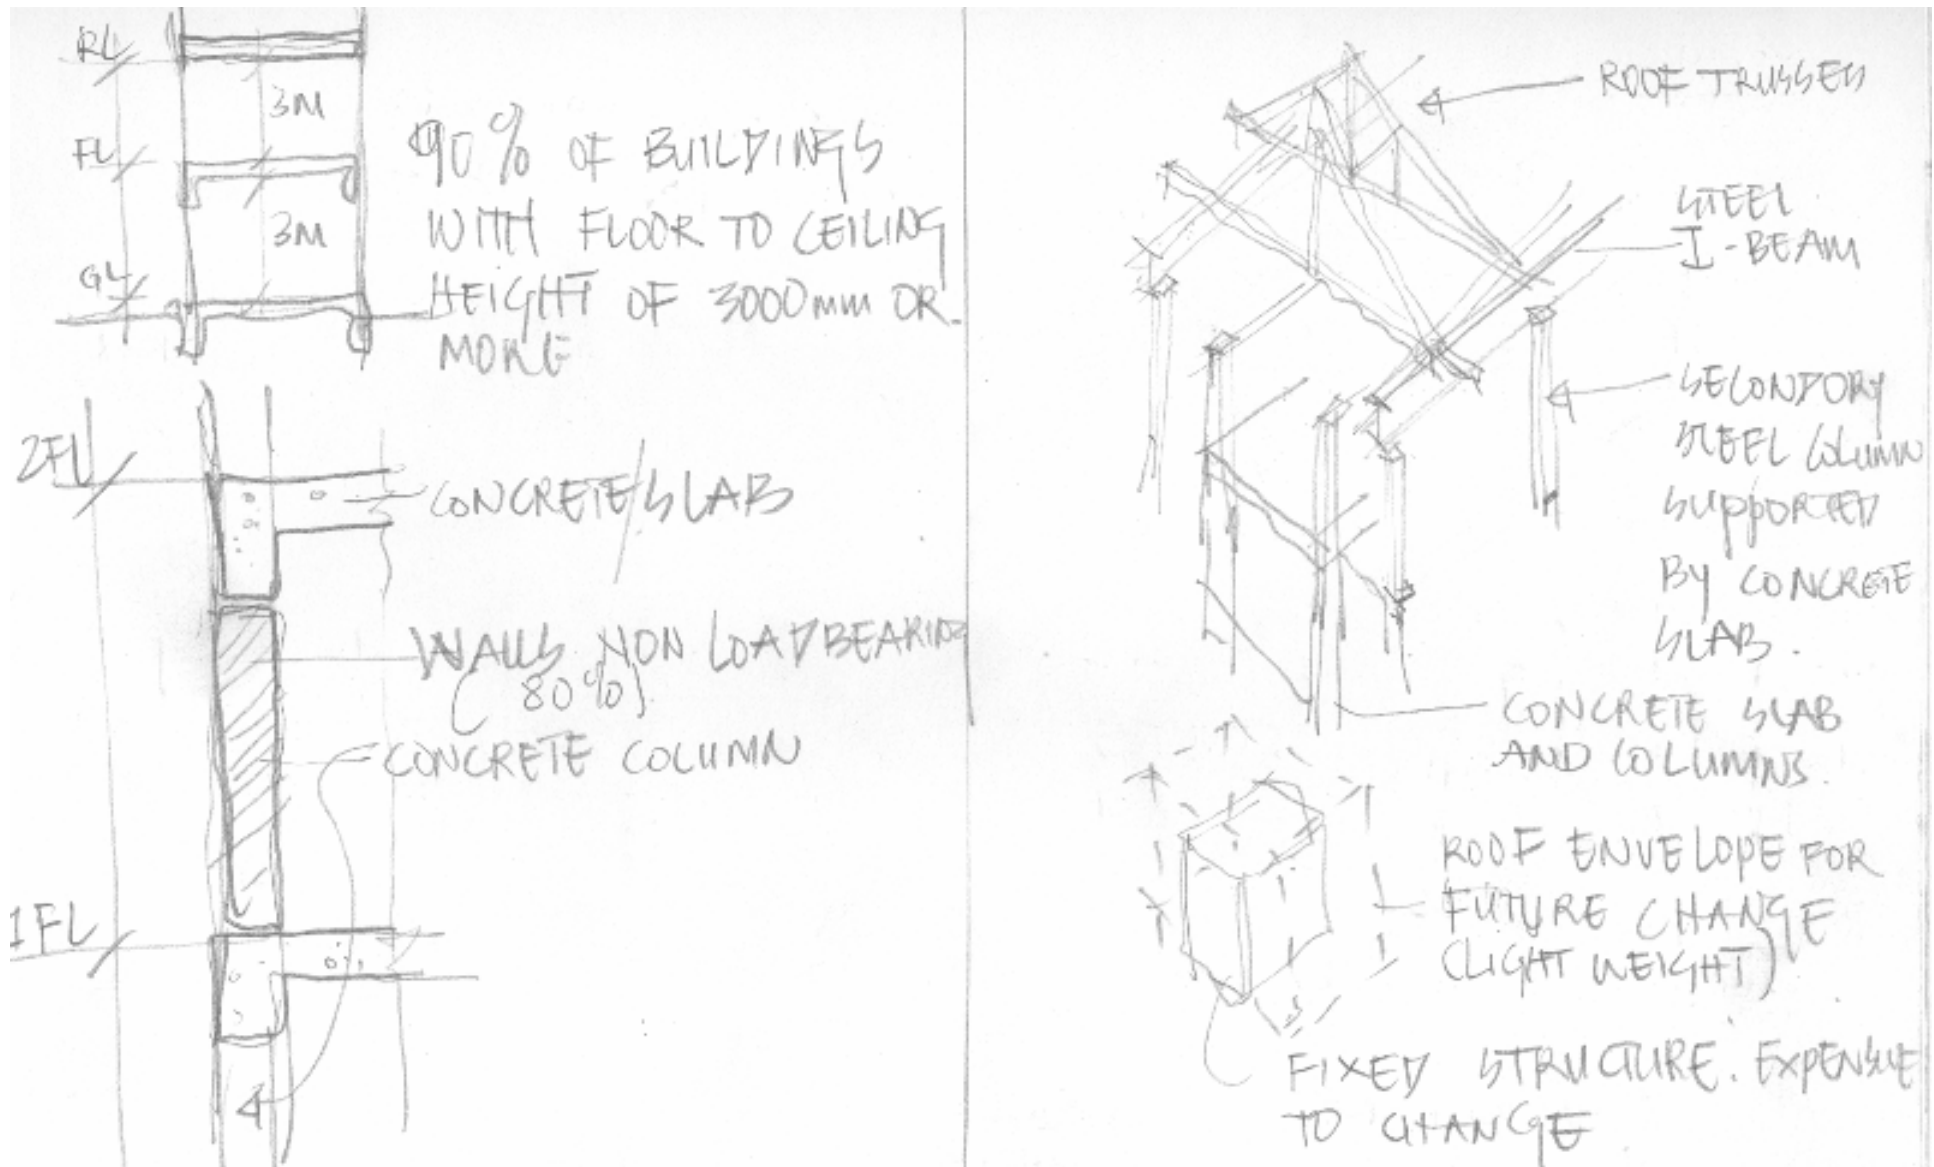 RL
3M
FL
3M
GL
90% OF BUILDINGS
WITH FLOOR TO CEILING
HEIGHT OF 3000mm OR
MORE
2FL
CONCRETE SLAB
WALLS NON LOADBEARING
(80%)
CONCRETE COLUMN
1FL
ROOF TRUSSES
STEEL
I-BEAM
SECONDORY
STEEL COLUMN
SUPPORTED
BY CONCRETE
SLAB.
CONCRETE SLAB
AND COLUMNS.
ROOF ENVELOPE FOR
FUTURE CHANGE
(LIGHT WEIGHT)
FIXED STRUCTURE. EXPENSIVE
TO CHANGE